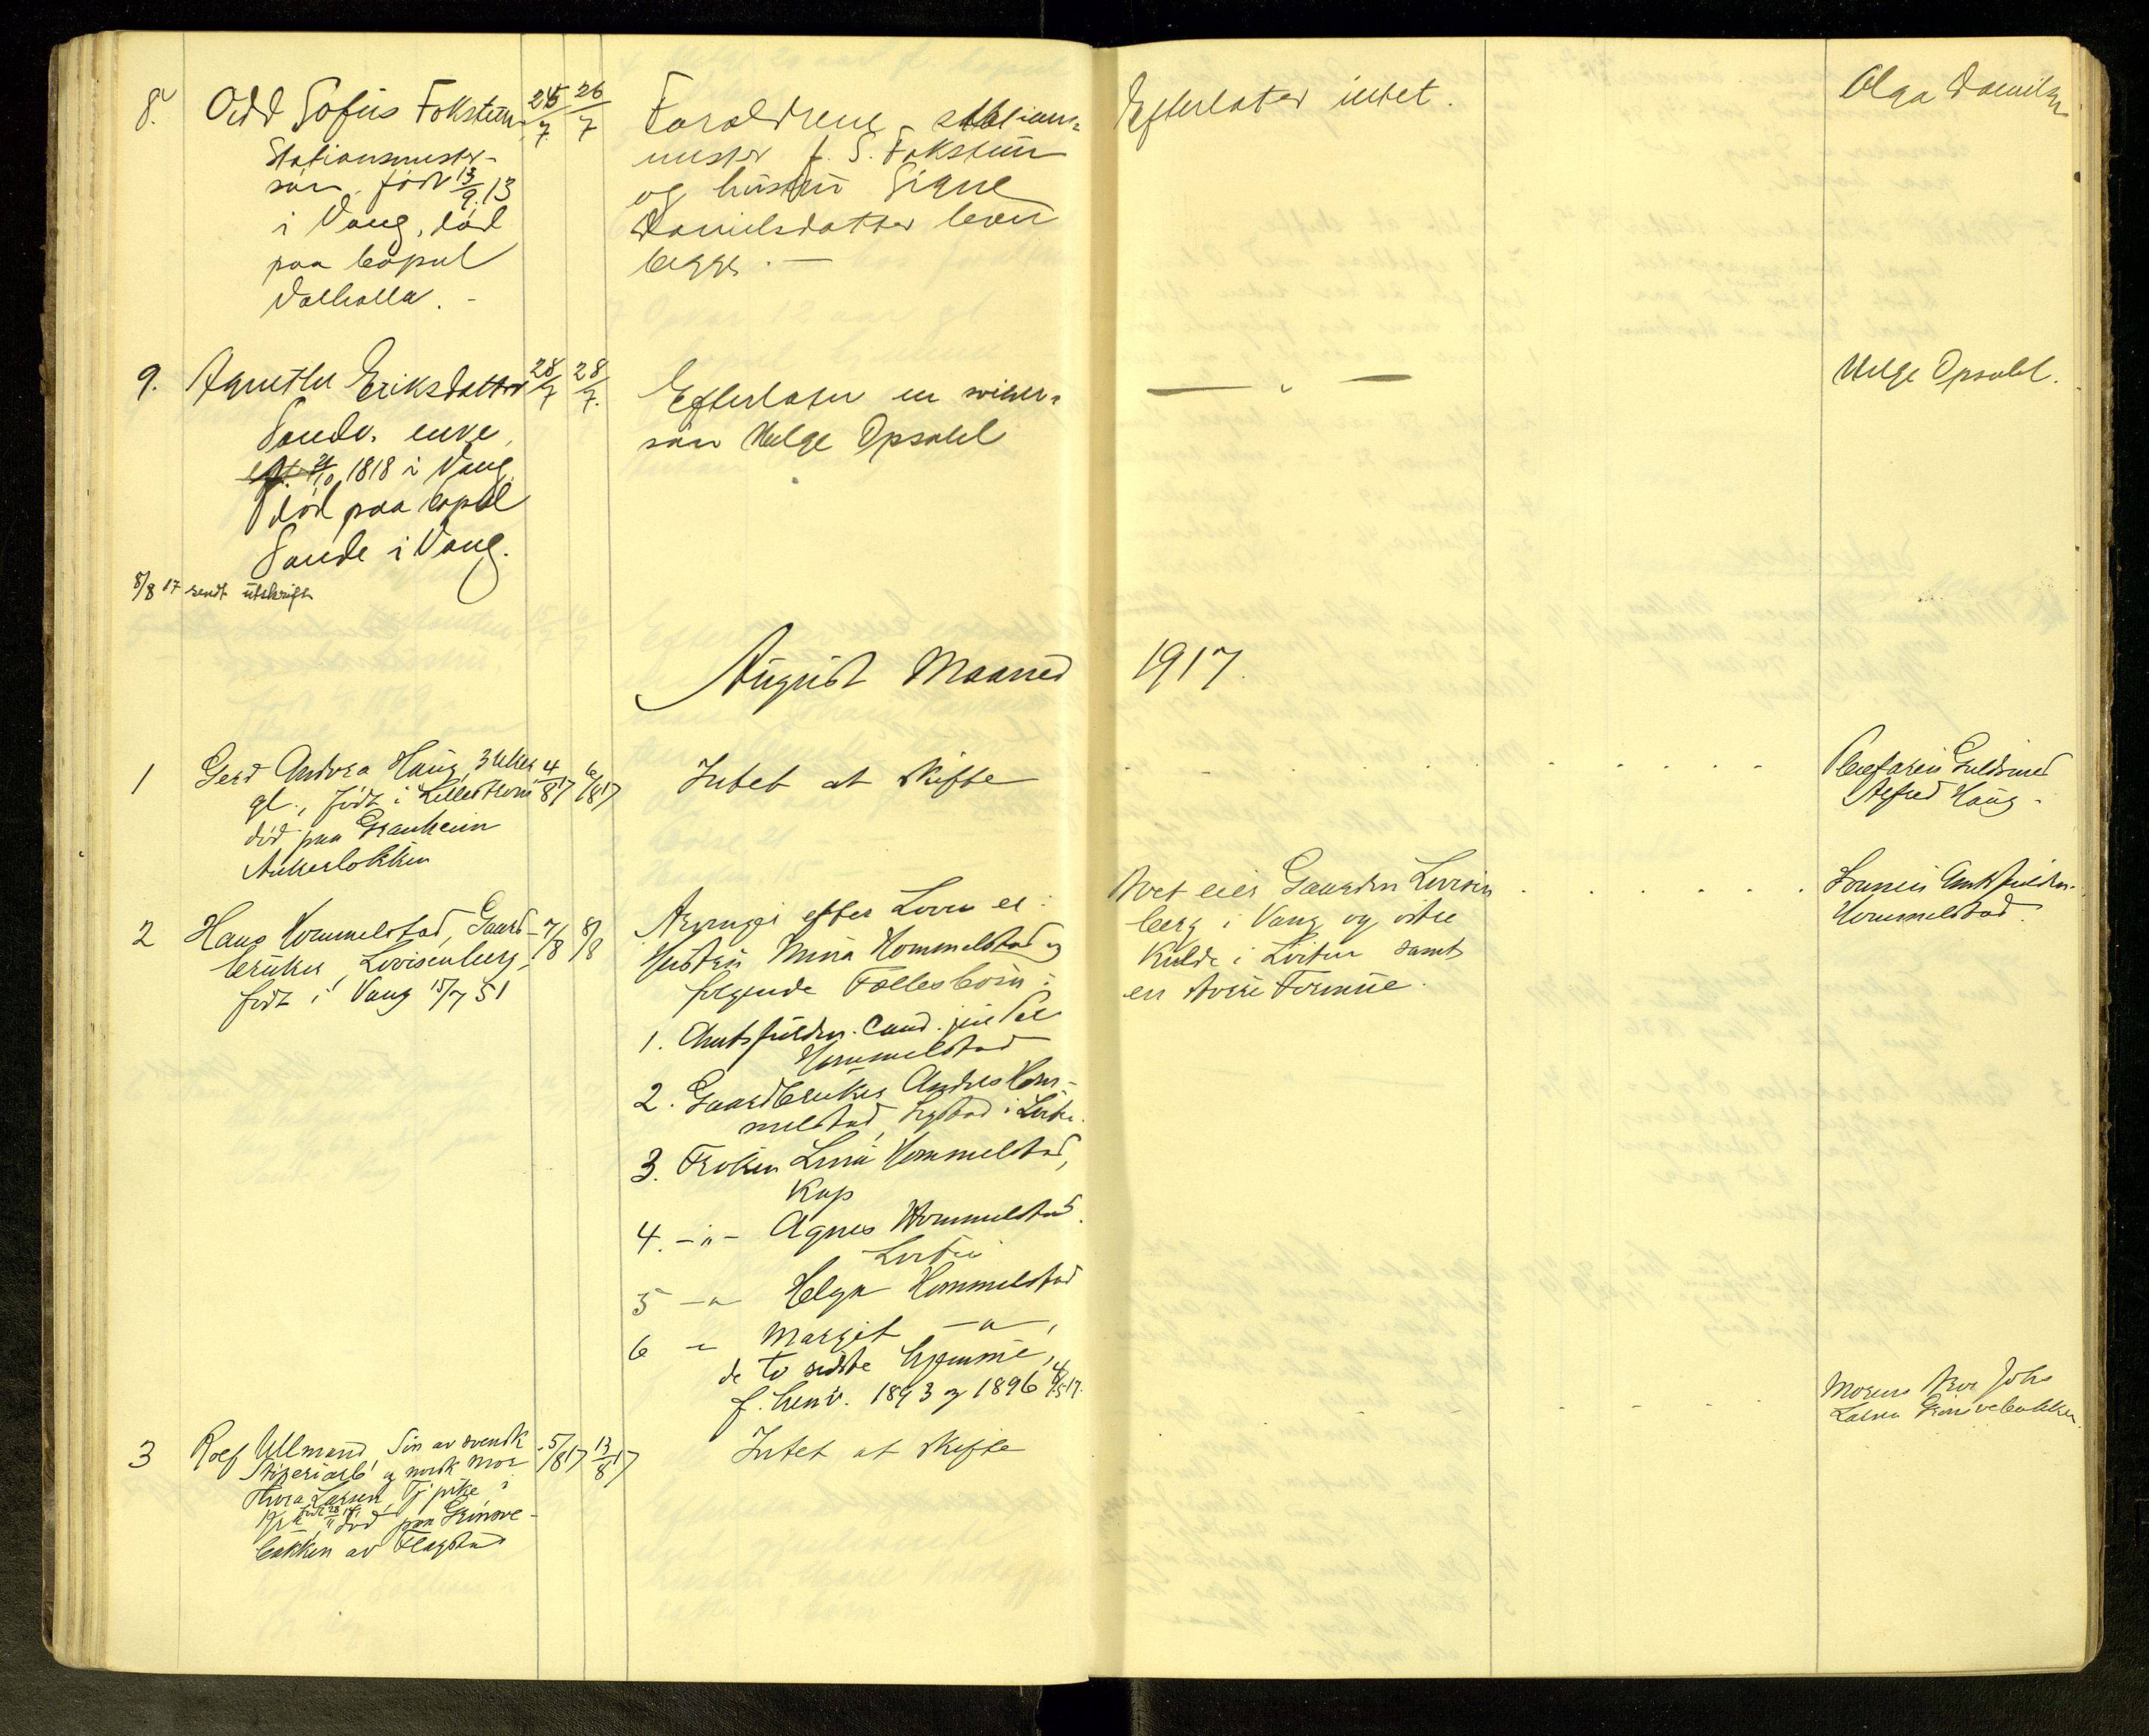 8.
Odd Sofus Fokstuen
Stationsmester-
søn, født 13/9.13
i Vang, død
paa løpul
Valhalla. -
25/7 26/7
Forældrene stations-
mester J. S. Fokstuen
og hustru Signe
Danielsdatter lever
begge. -
Efterlater intet.
Olga Danielsen
9.
Agnethe Eriksdatter
Sande, enke,
1818 i Vang
død paa løpul
Sande i Vang.
28/7 28/7.
Efterlater en
søn Helge Opsahl
— " —
Helge Opsahl.
8/8 17 sendt utskrift
August Maaned 1917.
1
Gerd Andrea Haug, 3 uker
gl., født i Lillestrøm
død paa Granheim
Ankerløkken
4/8 17 6/8 17
Intet at skifte
Guldsmed
Alfred Haug.
2
Hans Hommelstad, Gaard-
bruker, Lovisenberg,
født i Vang 15/7 51
7/8 8/8
Arvinger efter Loven er:
Hustru Mina Hommelstad og
følgende Fællesbørn:
1. Amtsfuldm. Cand. jur
Hommelstad
2. Gaardbruker Andres Hom-
melstad, i Løiten.
3. Frøken Lina Hommelstad,
Kap
4. -"- Agnes Hommelstad.
Løiten
5 -"- Helga Hommelstad
6 " Margit -"-,
de to sidste hjemme,
f. henv. 1893 og 1896
Boet eier Gaarden Lovisen
berg i Vang og østre
Kulde i Løiten samt
en Formue.
Sønnen Amtsfuldm.
Hommelstad.
3
Rolf Ullmand, Søn av svensk
og norsk mor
Thora Larsen, Tj.pike i
Kra født 28/11 død paa Grinove-
bakken av Flagstad
5/8 17 13/8 17
Intet at skifte
Morens Bror Johs
Larsen Grinovebakken